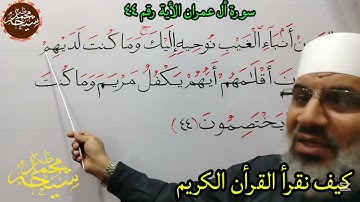 سورة آل عمران الأية رقم ٤٤
أَنۢبَآءِ ٱلْغَيْبِ نُوحِيهِ إِلَيْكَ وَمَا كُنتَ لَدَيْهِمْ
أَقْلَٰمَهُمْ أَيُّهُمْ يَكْفُلُ مَرْيَمَ وَمَا كُنتَ
يَخْتَصِمُونَ (٤٤)
كيف نقرأ القرآن الكريم